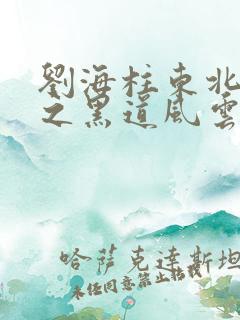 劉海柱東北
之黑道風雲
哈薩克達斯坦
未經同意禁止轉載